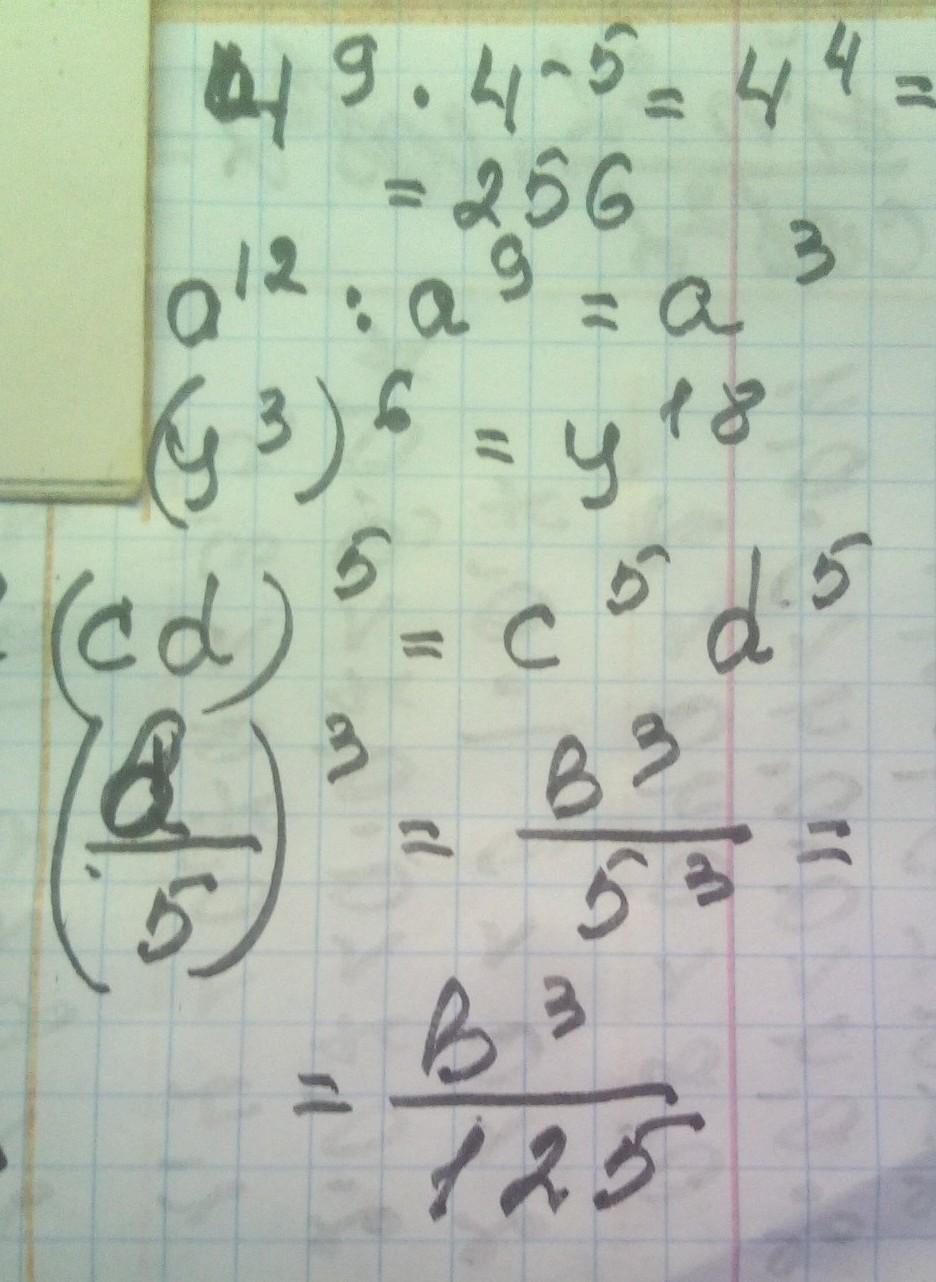 4⁹ · 4⁻⁵ = 4⁴ =
= 256
a¹² : a⁹ = a³
(y³)⁶ = y¹⁸
(cd)⁵ = c⁵ d⁵
(/5)³ = B³/5³ =
= B³/125